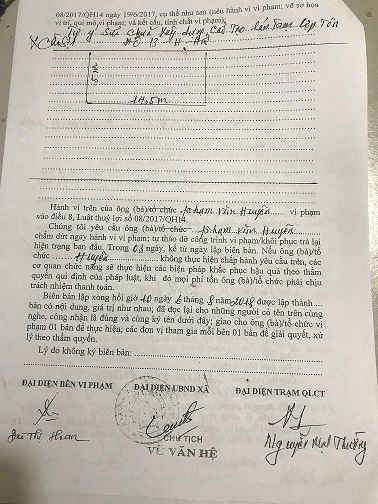 08/2017/QH14 ngày 19/6/2017, cụ thể như sau (nêu hành vi vi phạm; vẽ sơ họa
vị trí, quy mô vi phạm; và kết cấu, tính chất vi phạm):
Tự ý Sửa chữa Xây dựng, Cải Tạo lán Tam lợp Tôn
5m
14,5m
Hành vi trên của ông (bà)/tổ chức phạm Văn Huyên vi phạm
vào điều 8, Luật thuỷ lợi số 08/2017/QH14.
Chúng tôi yêu cầu ông (bà)/tổ chức phạm Văn Huyên
chấm dứt ngay hành vi vi phạm; tự tháo dỡ công trình vi phạm/khôi phục trả lại
hiện trạng ban đầu. Trong 03 ngày, kể từ ngày lập biên bản. Nếu ông (bà)/tổ
chức Huyên không thực hiện chấp hành yêu cầu trên, các
cơ quan chức năng sẽ thực hiện các biện pháp khắc phục hậu quả theo thẩm
quyền qui định của pháp luật, khi đó mọi phí tổn ông (bà)/tổ chức phải chịu
trách nhiệm thanh toán.
Biên bản lập xong hồi giờ 10 ngày 6 tháng 8 năm 2018 được lập thành
bản có nội dung, giá trị như nhau; đã đọc lại cho những người có tên trên cùng
nghe, công nhận là đúng và cùng ký tên dưới đây; giao cho ông (bà)/tổ chức vi
phạm 01 bản để thực hiện; các đơn vị tham gia mỗi bên 01 bản để giải quyết, xử
lý theo thẩm quyền.
Lý do không ký biên bản:
ĐẠI DIỆN BÊN VI PHẠM ĐẠI DIỆN UBND XÃ ĐẠI DIỆN TRẠM QLCT
CHỦ TỊCH
VŨ VĂN HỆ
Bùi Thị Hoan
Nguyễn Mạnh Thường